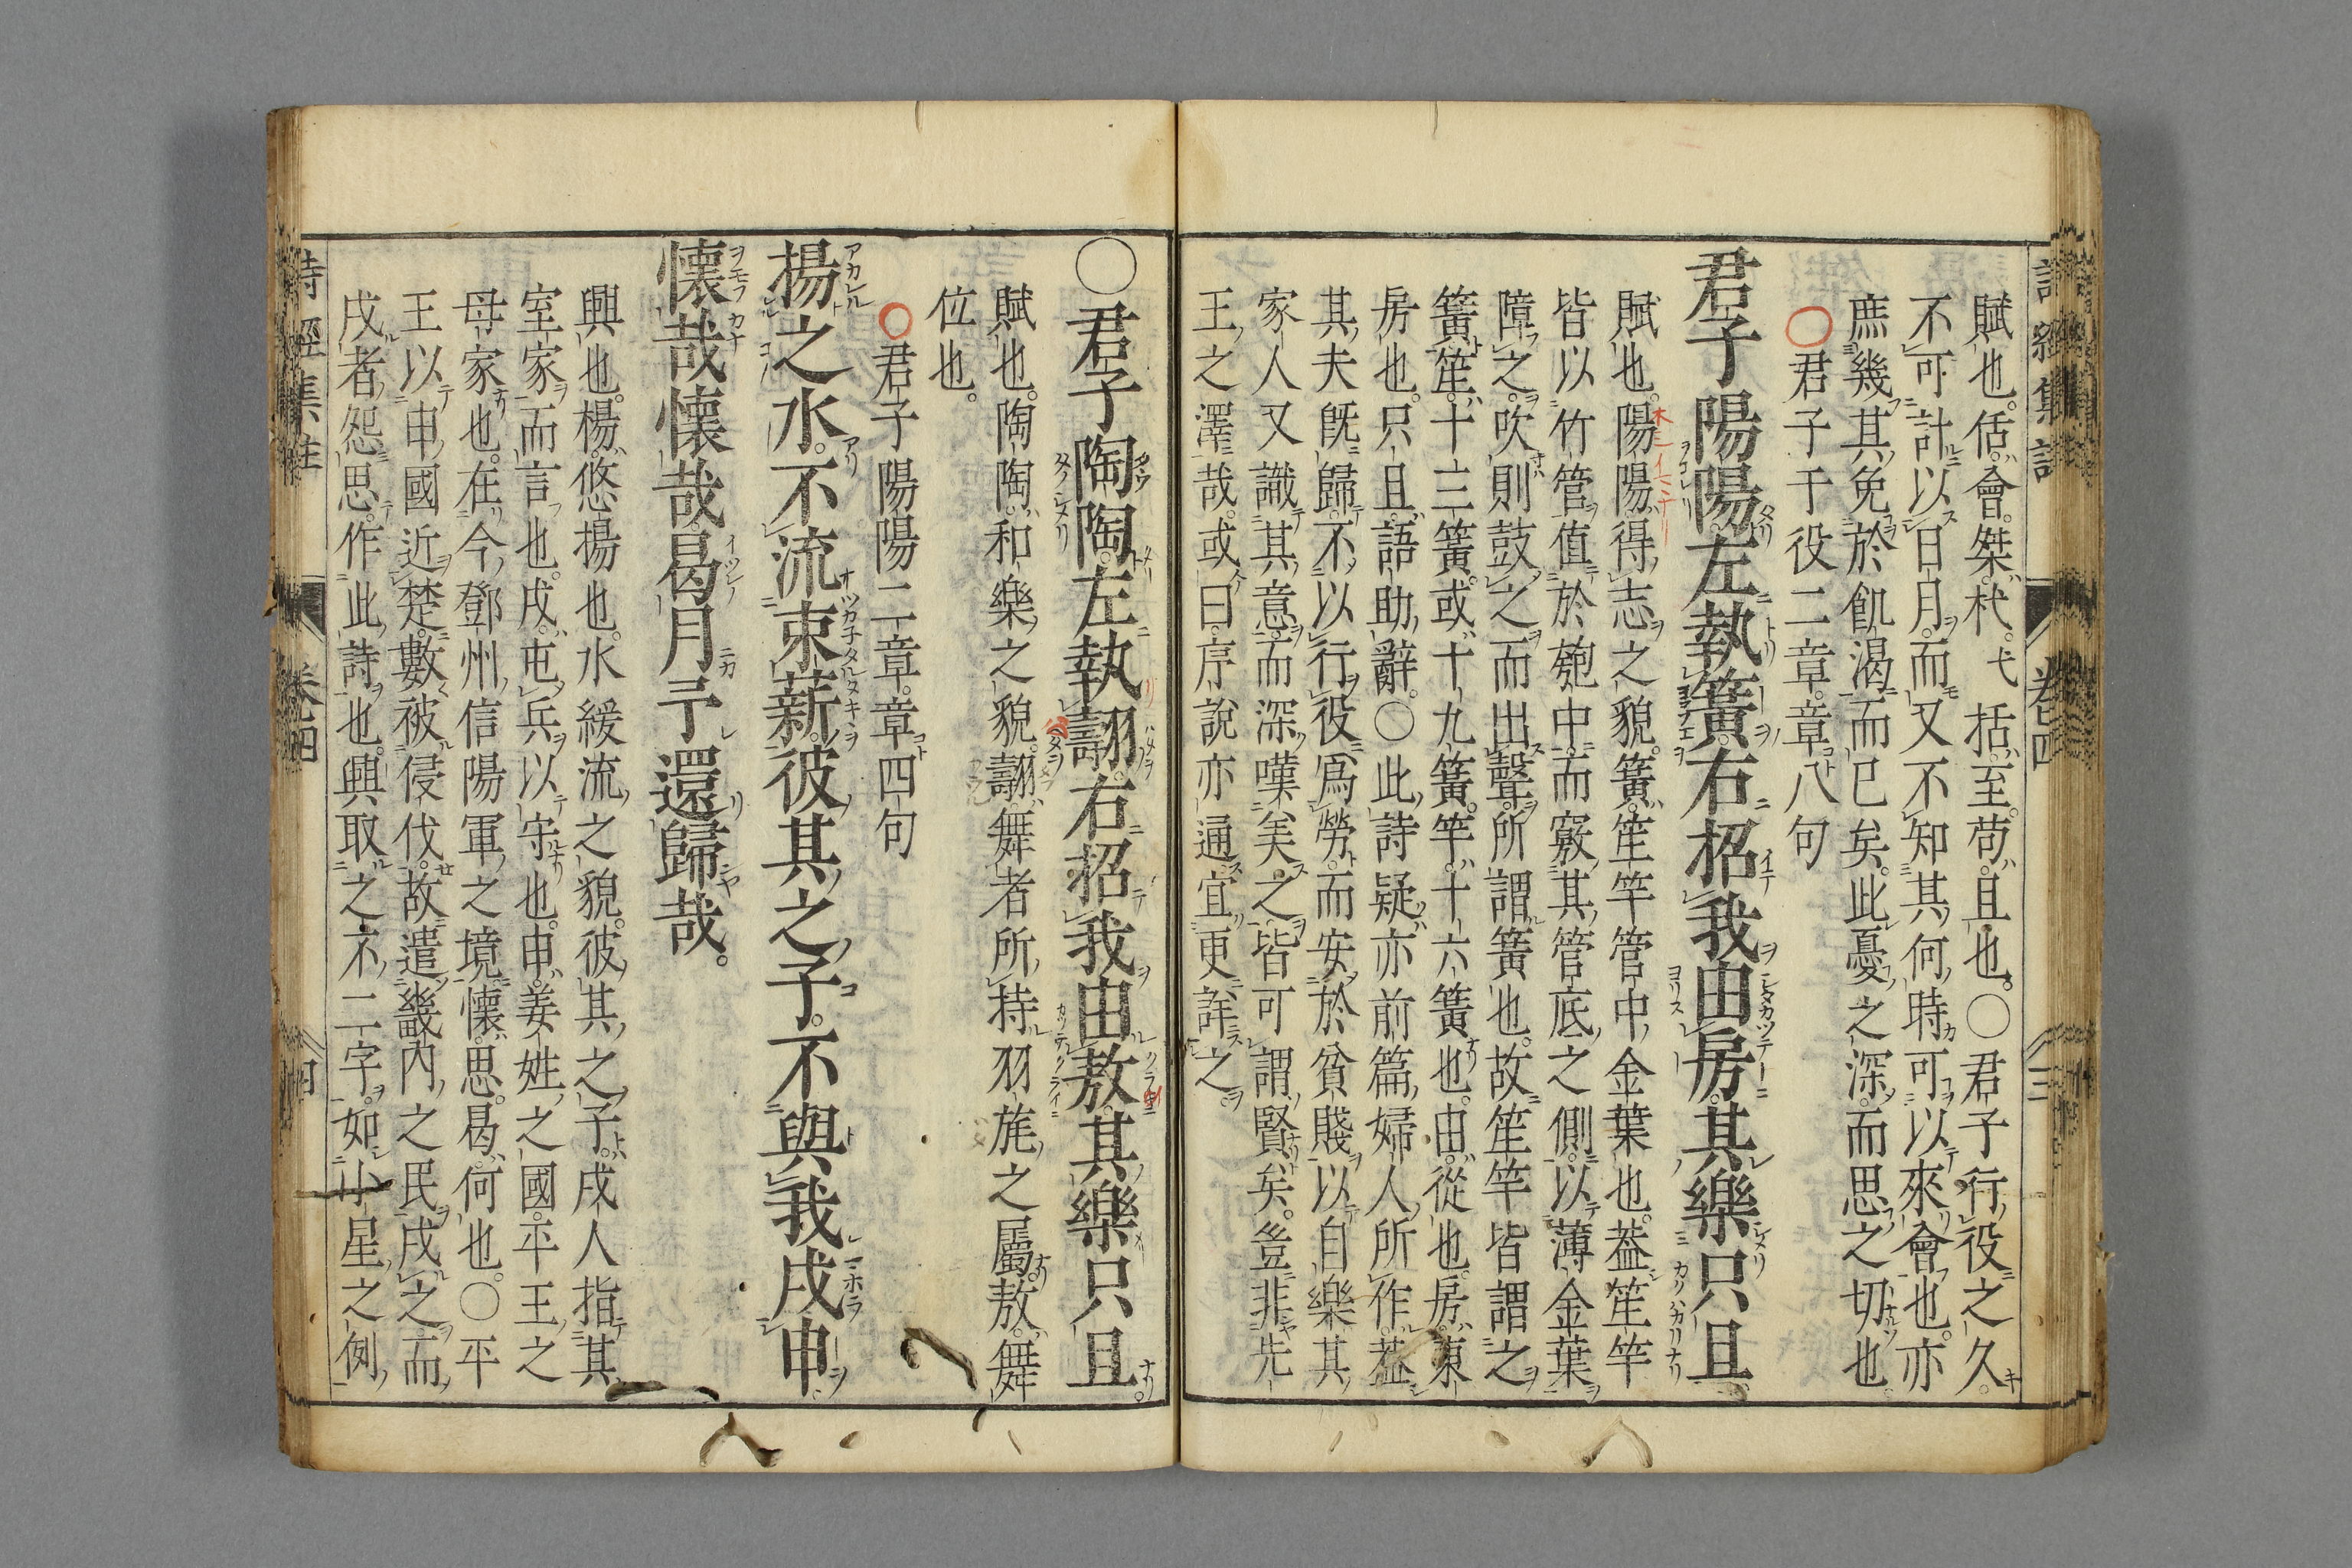 賦也。佸。會。桀。杙。弋括。至。苟。且也。〇君子行役之久。
不可計以日月。而又不知其何時可以來會也。亦
庶幾其免於飢渴而已矣。此憂之深。而思之切也。
〇君子于役二章。章八句
君子陽陽。左執簧。右招我由房。其樂只且。
賦也。陽陽。得志之貌。簧。笙竽管中金葉也。蓋笙竽
皆以竹管值於匏中。而竅其管底之側。以薄金葉
障之。吹則鼓之而出聲。所謂簧也。故笙竽皆謂之
簧。笙。十三簧。或十九簧。竽。十六簧也。由。從也。房。東
房也。只且。語助辭。〇此詩疑亦前篇婦人所作。蓋
其夫既歸。不以行役爲勞。而安於貧賤。以自樂其
家人又識其意。而深嘆美之。皆可謂賢矣。豈非先
王之澤哉。或曰。序說亦通。宜更詳之。
〇君子陶陶。左執翿。右招我由敖。其樂只且。
賦也。陶陶。和樂之貌。翿。舞者所持羽旄之屬。敖。舞
位也。
〇君子陽陽二章。章四句
揚之水。不流束薪。彼其之子。不與我戍申。
懷哉懷哉。曷月予還歸哉。
興也。揚。悠揚也。水緩流之貌。彼其之子。戍人指其
室家而言也。戍。屯兵以守也。申。姜姓之國。平王之
母家也。在今鄧州信陽軍之境。懷。思。曷。何也。〇平
王以申國近楚。數被侵伐。故遣畿内之民戍之。而
戍者怨思。作此詩也。興取之不二字。如小星之例。
詩經集註
卷四
三
詩經集註
卷四
四